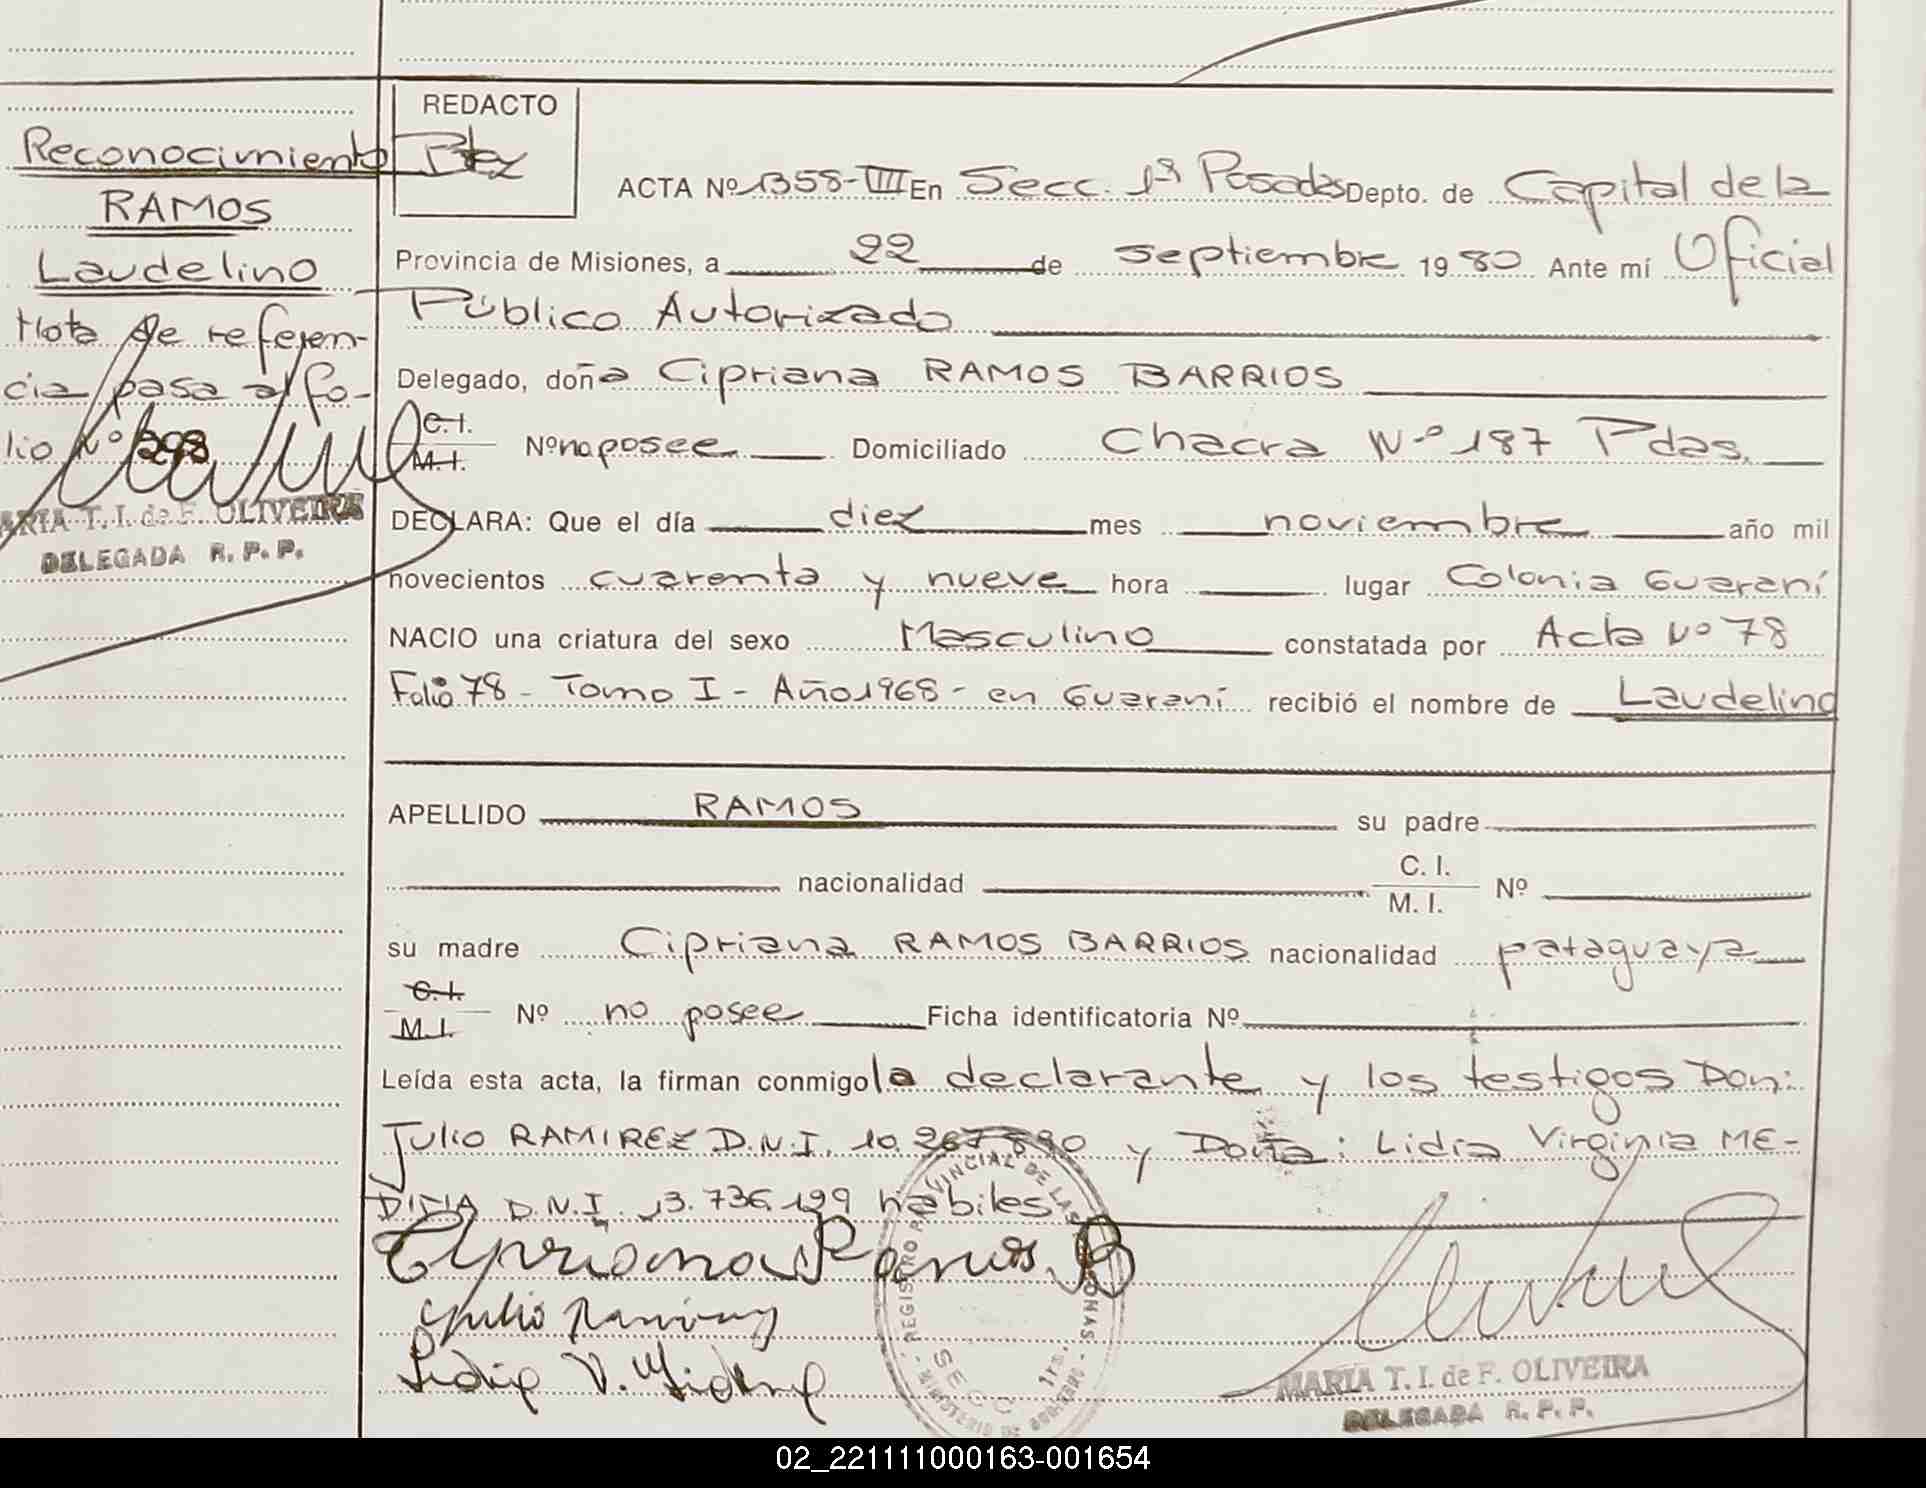 Reconocimiento
RAMOS
Laudelino
Nota de referen-
cia pasa al fo-
lio Nº 298
MARIA T. I. de F. OLIVEIRA
DELEGADA R. P. P.
REDACTO
ACTA Nº 1358-VIII En Secc. 1ª Posadas Depto. de Capital de la
Provincia de Misiones, a 22 de septiembre 1980 Ante mí Oficial
Público Autorizado
Delegado, doña Cipriana RAMOS BARRIOS
C.I.
M.I.
Nº no posee Domiciliado Chacra Nº 187 Pdas.
DECLARA: Que el día diez mes noviembre año mil
novecientos cuarenta y nueve hora lugar Colonia Guaraní
NACIO una criatura del sexo Masculino constatada por Acta Nº 78
Folio 78 - Tomo I - Año 1968 - en Guaraní recibió el nombre de Laudelino
APELLIDO RAMOS su padre
nacionalidad C. I. M. I. Nº
su madre Cipriana RAMOS BARRIOS nacionalidad pataguaya
C.I.
M.I.
Nº no posee Ficha identificatoria Nº
Leída esta acta, la firman conmigo la declarante y los testigos Don:
Julio RAMIREZ D.N.I. 10.267.890 y Doña: Lidia Virginia ME-
DINA D.N.I. 13.736.199 habiles
Cipriana Ramos B
Julio Ramirez
Lidia V. Medina
REGISTRO PROVINCIAL DE LAS PERSONAS
SECC 1ra.
MINISTERIO DE GOBIERNO
MARIA T. I. de F. OLIVEIRA
DELEGADA R. P. P.
02_221111000163-001654